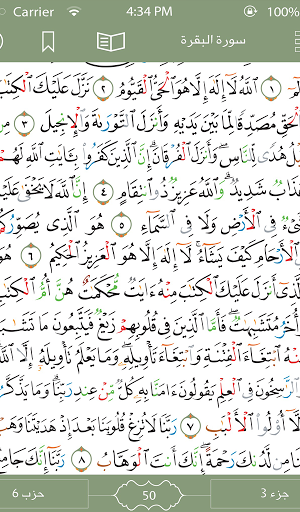 Carrier 4:34 PM 100%
سورة البقرة
ـمٓ ١ ٱللَّهُ لَآ إِلَٰهَ إِلَّا هُوَ ٱلْحَىُّ ٱلْقَيُّومُ ٢ نَزَّلَ عَلَيْكَ ٱلْكِتَٰبَ
ٱلْحَقِّ مُصَدِّقًا لِّمَا بَيْنَ يَدَيْهِ وَأَنزَلَ ٱلتَّوْرَىٰةَ وَٱلْإِنجِيلَ ٣
بْلُ هُدًى لِّلنَّاسِ وَأَنزَلَ ٱلْفُرْقَانَ ۗ إِنَّ ٱلَّذِينَ كَفَرُوا۟ بِـَٔايَٰتِ ٱللَّهِ لَهُمْ
ذَابٌ شَدِيدٌ ۗ وَٱللَّهُ عَزِيزٌ ذُو ٱنتِقَامٍ ٤ إِنَّ ٱللَّهَ لَا يَخْفَىٰ عَلَيْهِ
ىْءٌ فِى ٱلْأَرْضِ وَلَا فِى ٱلسَّمَآءِ ٥ هُوَ ٱلَّذِى يُصَوِّرُكُ
ٱلْأَرْحَامِ كَيْفَ يَشَآءُ ۚ لَآ إِلَٰهَ إِلَّا هُوَ ٱلْعَزِيزُ ٱلْحَكِيمُ ٦ هُوَ
ذِىٓ أَنزَلَ عَلَيْكَ ٱلْكِتَٰبَ مِنْهُ ءَايَٰتٌ مُّحْكَمَٰتٌ هُنَّ أُمُّ ٱلْكِتَٰبِ
أُخَرُ مُتَشَٰبِهَٰتٌ ۖ فَأَمَّا ٱلَّذِينَ فِى قُلُوبِهِمْ زَيْغٌ فَيَتَّبِعُونَ مَا تَشَٰبَ
نْهُ ٱبْتِغَآءَ ٱلْفِتْنَةِ وَٱبْتِغَآءَ تَأْوِيلِهِۦ ۗ وَمَا يَعْلَمُ تَأْوِيلَهُۥٓ إِلَّا ٱللَّهُ
ٱلرَّٰسِخُونَ فِى ٱلْعِلْمِ يَقُولُونَ ءَامَنَّا بِهِۦ كُلٌّ مِّنْ عِندِ رَبِّنَا ۗ وَمَا يَذَّكَّرُ
لَّآ أُو۟لُوا۟ ٱلْأَلْبَٰبِ ٧ رَبَّنَا لَا تُزِغْ قُلُوبَنَا بَعْدَ إِذْ هَدَيْتَنَا وَهَ
نَا مِن لَّدُنكَ رَحْمَةً ۚ إِنَّكَ أَنتَ ٱلْوَهَّابُ ٨ رَبَّنَآ إِنَّكَ جَامِعُ
جزء 3 50 حزب 6